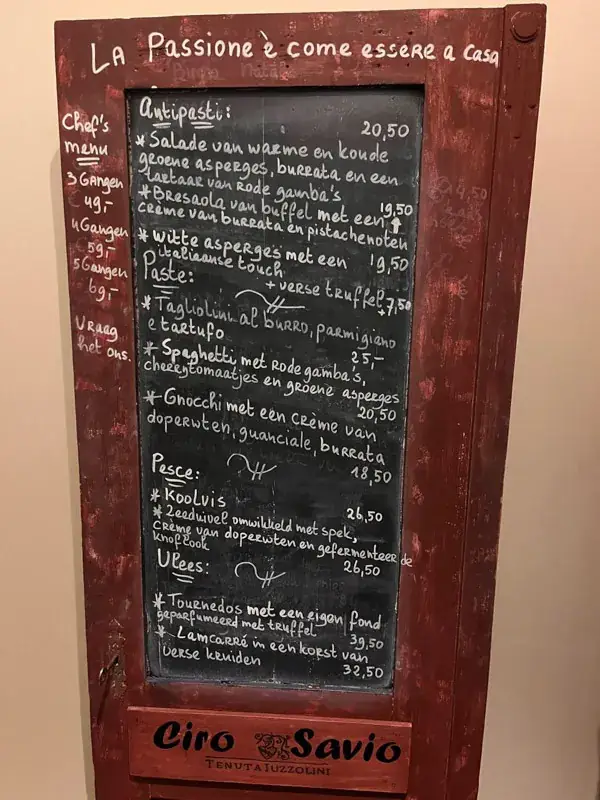 La Passione è come essere a casa
Chef's
menu
3 Gangen
49,-
4 Gangen
59,-
5 Gangen
69,-
Vraag
het ons.
Antipasti:
20,50
* Salade van warme en koude
groene asperges, burrata en een
tartaar van rode gamba's
* Bresaola van buffel met een 19,50
crème van burrata en pistachenoten
* witte asperges met een 19,50
italiaanse touch
+ verse truffel +7,50
Paste:
* Tagliolini al burro, parmigiano
e tartufo 25,-
* Spaghetti met rode gamba's,
cherrytomaatjes en groene asperges
20,50
* Gnocchi met een crème van
doperwten, guanciale, burrata
18,50
Pesce:
* Koolvis 26,50
* Zeeduivel omwikkeld met spek,
crème van doperwten en gefermenteerde
knoflook 26,50
Vlees:
* Tournedos met een eigen fond
geparfumeerd met truffel 39,50
* Lamcarré in een korst van
verse kruiden 32,50
Ciro Savio
Tenuta Iuzzolini